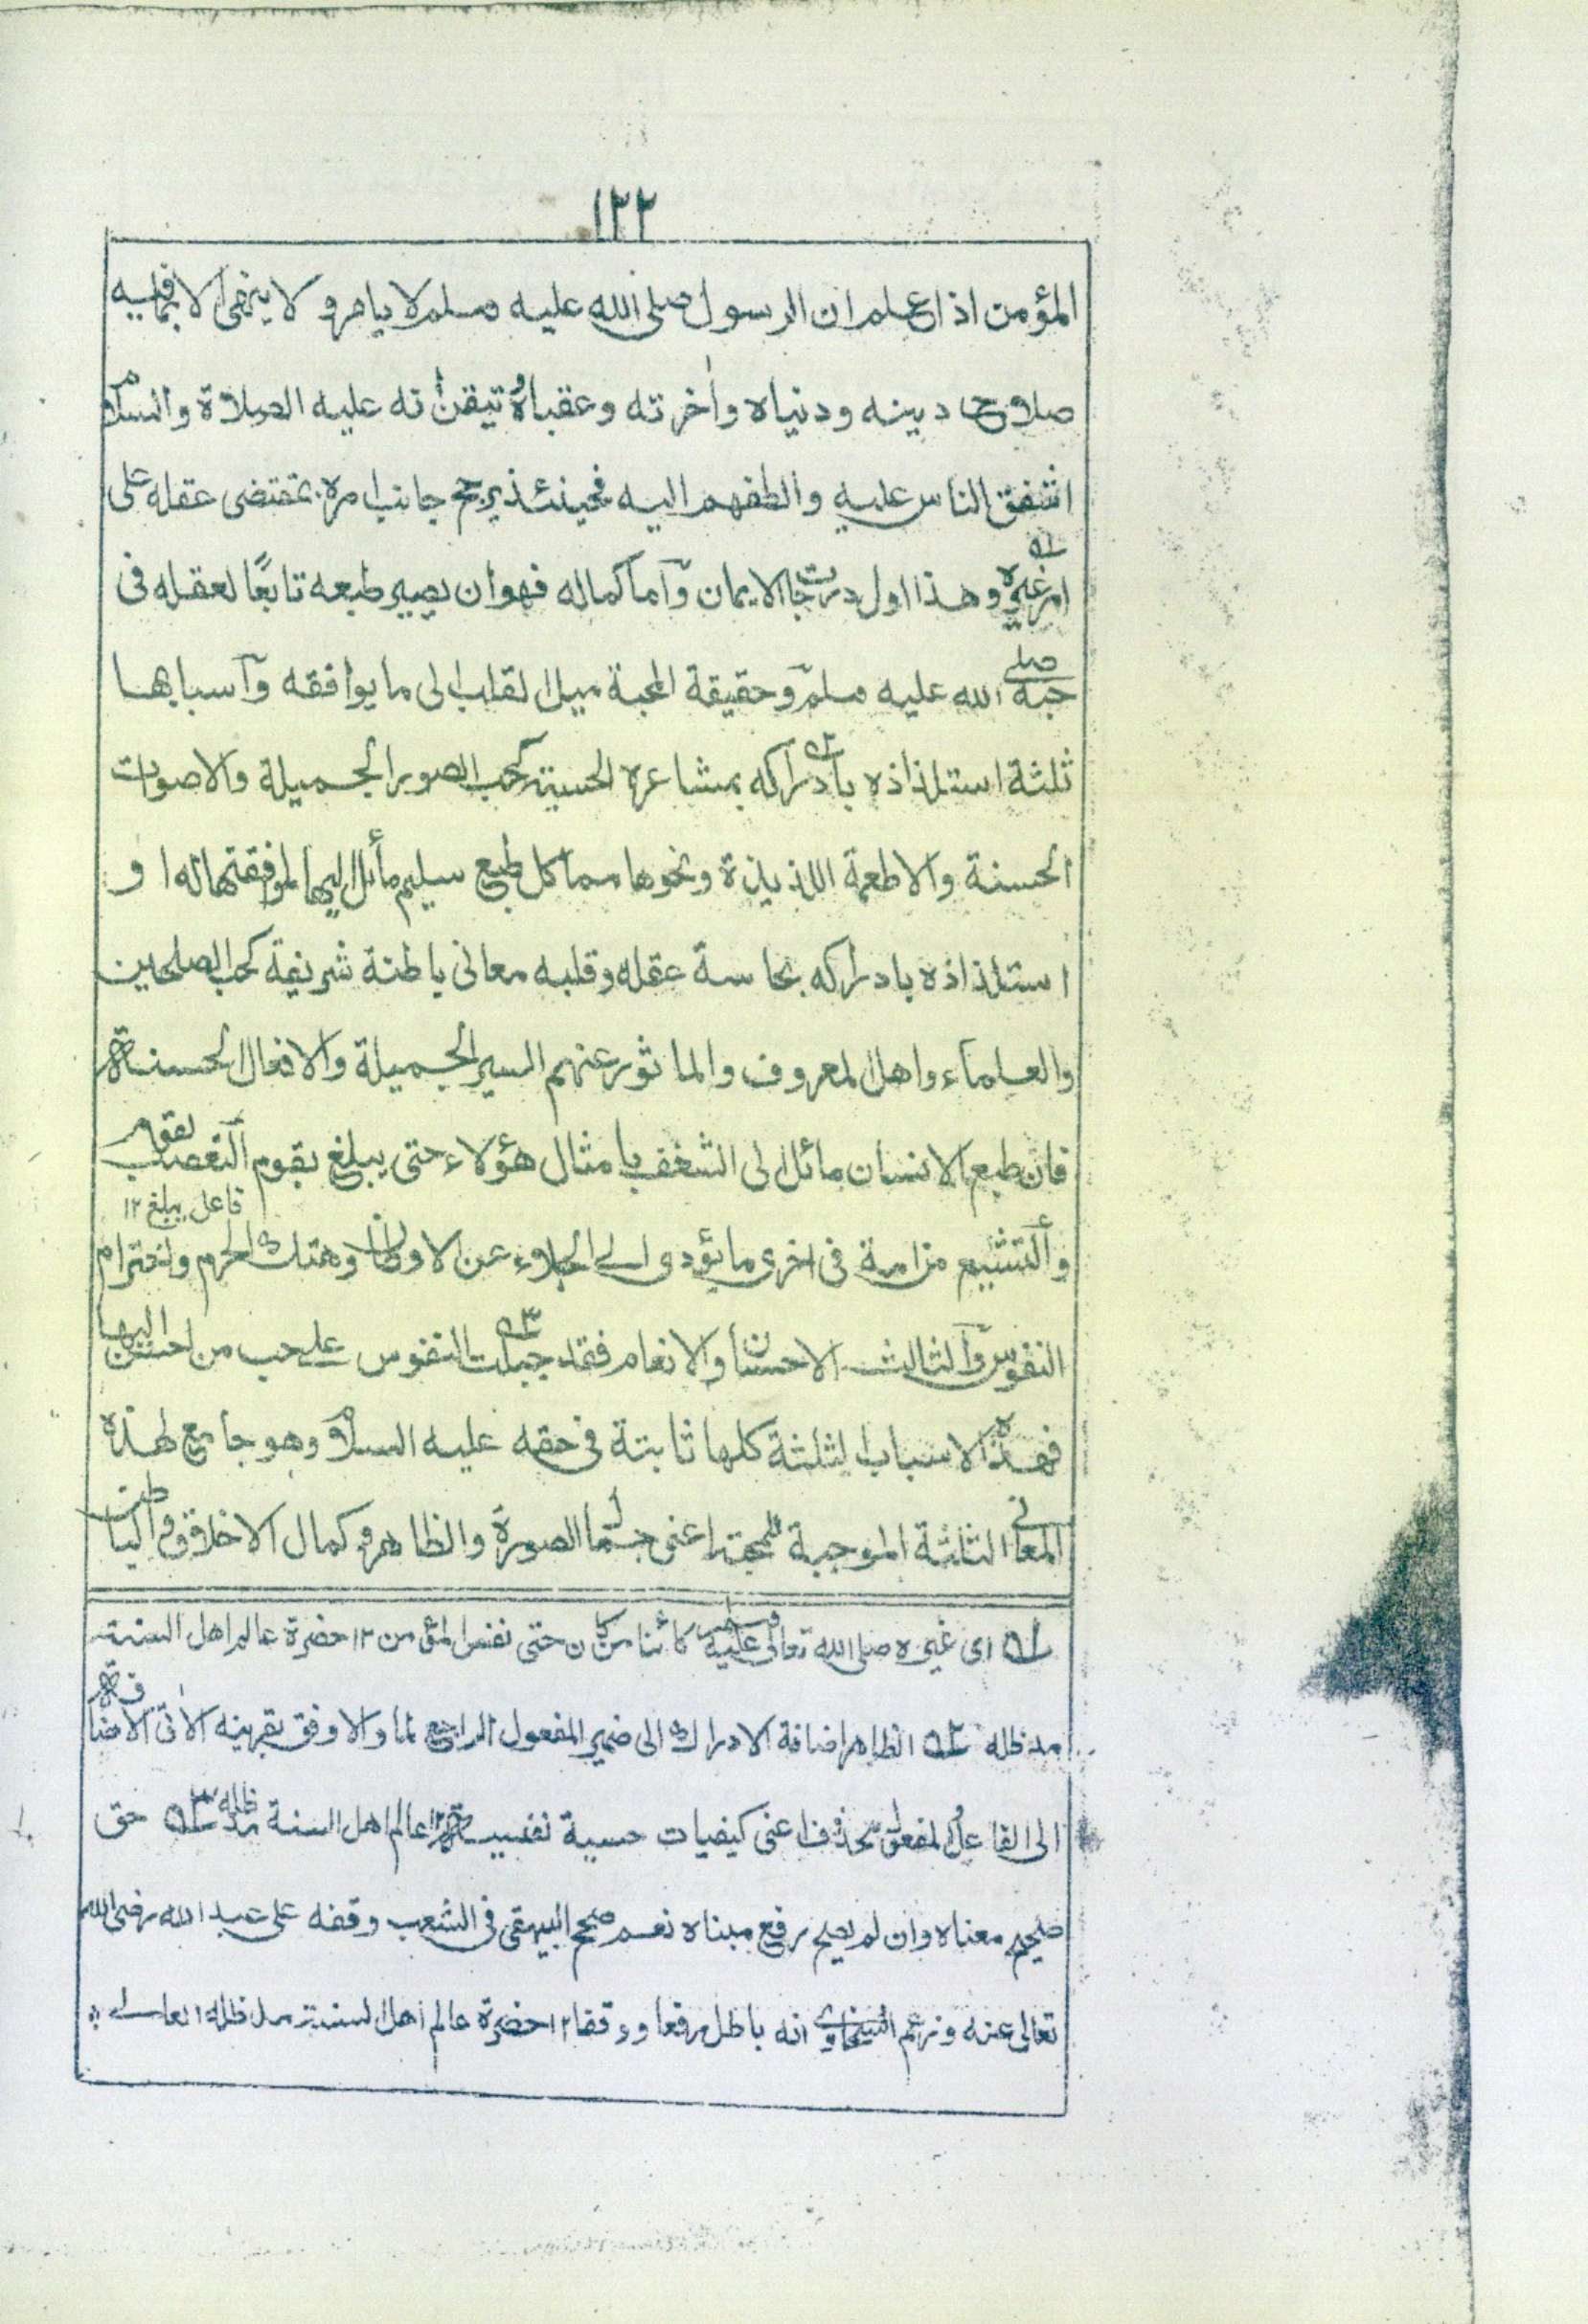 ١٢٢
المؤمن اذا علم ان الرسول صلى الله عليه وسلم لا يامر و لا ينهى الا بما فيه
صلاح دينه ودنياه وأخرته وعقباه وتيقن أنه عليه الصلاة والسلام
اشفق الناس عليه والطفهم اليه فحينئذ يرجح جانب امره بمقتضى عقله على
امر غيره ١ وهذا اول درجات الايمان وآما كماله فهو ان يصير طبعه تابعًا لعقله فى
حبه صلى الله عليه وسلم وحقيقة المحبة ميل القلب الى ما يوافقه وآسبابها
ثلثة استلذاذه بادراكه ٢ بمشاعره الحسية كحب الصور الجميلة والاصوات
الحسنة والاطعمة اللذيذة ونحوها مما كل طبع سليم مائل اليها لموافقتها له او
استلذاذه بادراكه بحاسة عقله وقلبه معانى باطنة شريفة كحب الصلحين
والعلماء واهل المعروف والماثور عنهم السير الجميلة والافعال الحسنة
فان طبع الانسان مائل الى الشغف بامثال هؤلاء حتى يبلغ بقوم التعصب لقوم
فاعل يبلغ ١٢
وألتشيع من امة فى اخرى ما يؤدى الى الجلاء عن الاوطان وهتك الحرم واخترام
النفوس وآلثالث الاحسان والانعام فقد جبلت ٣ النفوس على حب من احسن اليها
فهذه الاسباب الثلثة كلها ثابتة فى حقه عليه السلام وهو جامع لهذه
المعانى الثلثة الموجبة للمحبة اعنى جمال الصورة والظاهر وكمال الاخلاق والباطن
١ اى غيره صلى الله تعالى عليه وسلم كائنا من كان حتى نفس المؤمن ١٢ حضرة عالم اهل السنة
مد ظله ٢ الظاهر اضافة الادراك الى ضمير المفعول الراجع لما والاوفق بقرينه الاتى الاضافة
الى الفاعل والمفعول محذوف اعنى كيفيات حسية نفيسة ١٢ عالم اهل السنة مد ظله ٣ حق
صحيح معناه وان لم يصح رفع مبناه نعم صحح البيهقى فى الشعب وقفه على عبد الله رضى الله
تعالى عنه وزعم السخاوى انه باطل رفعا ووقفا ١٢ حضرة عالم اهل السنة مد ظله العالى